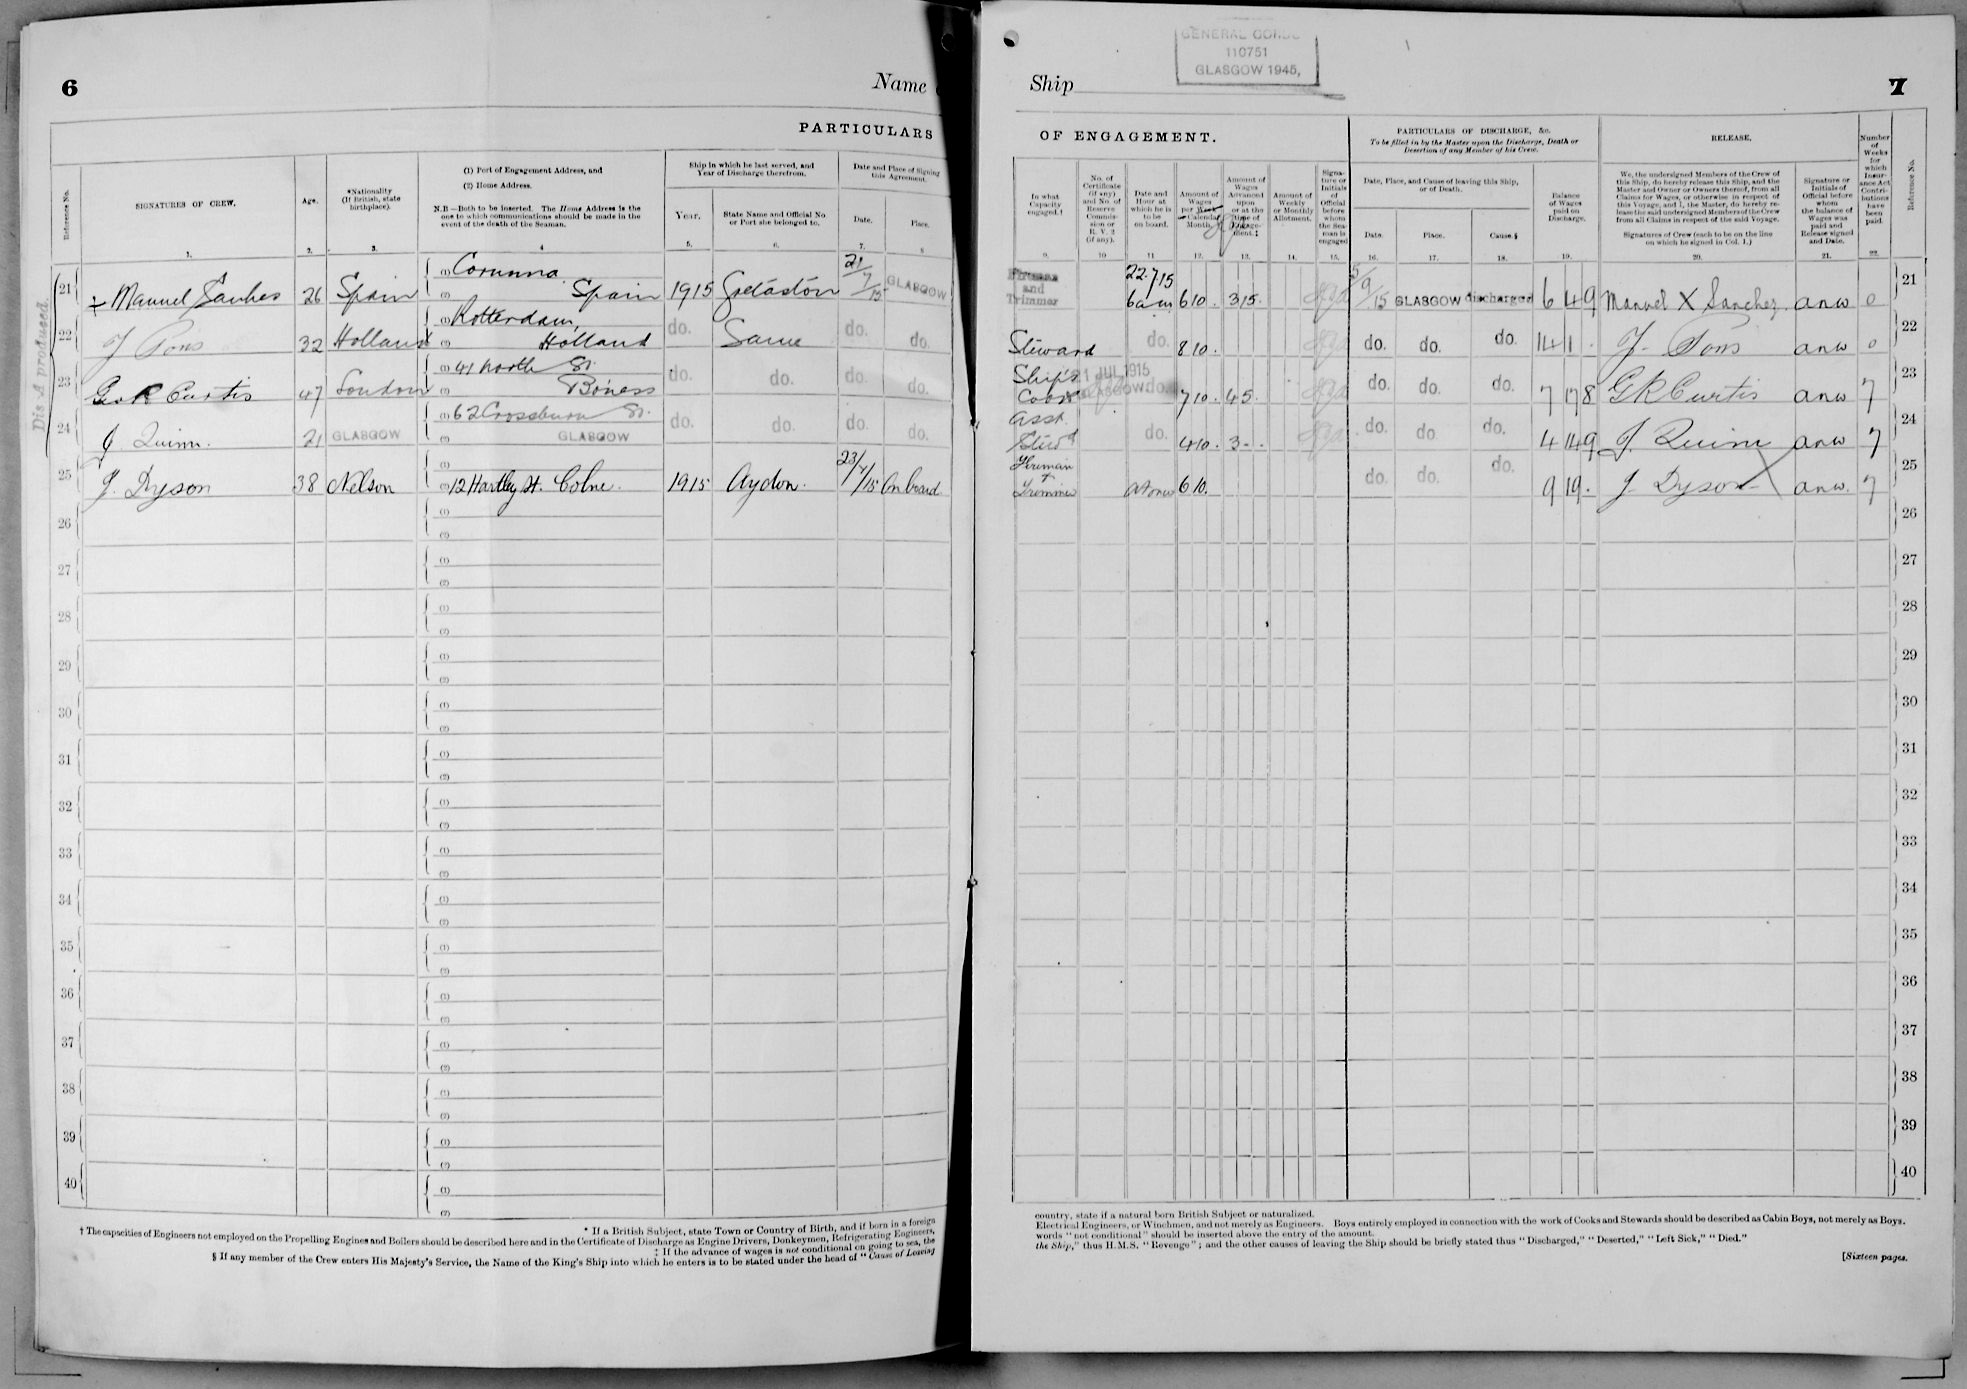 6
Name
PARTICULARS
Reference No.
SIGNATURES OF CREW.
Age.
*Nationality
(If British, state
birthplace).
(1) Port of Engagement Address, and
(2) Home Address.
N.B—Both to be inserted. The Home Address is the
one to which communications should be made in the
event of the death of the Seaman.
Ship in which he last served, and
Year of Discharge therefrom.
Year.
State Name and Official No
or Port she belonged to.
Date and Place of Signing
this Agreement.
Date.
Place.
1. 2. 3. 4 5. 6. 7. 8
Dis A produced.
21 + Manuel 26 Spain (1) Corunna (2) Spain 1915 21/7/15 GLASGOW
22 J Pons 32 Holland (1) Rotterdam, (2) Holland do. Same do. do.
23 G R Curtis 47 London (1) 41 North St. Boness do. do. do. do.
24 J. Quinn. 21 GLASGOW (1) 62 Crossburn St. (2) GLASGOW do. do. do. do.
25 J. Dyson 38 Nelson (1) (2) 12 Hartley St. Colne. 1915 Aydon. 23/7/15 On board.
26 (1) (2)
27 (1) (2)
28 (1) (2)
29 (1) (2)
30 (1) (2)
31 (1) (2)
32 (1) (2)
33 (1) (2)
34 (1) (2)
35 (1) (2)
36 (1) (2)
37 (1) (2)
38 (1) (2)
39 (1) (2)
40 (1) (2)
* If a British Subject, state Town or Country of Birth, and if born in a foreign
† The capacities of Engineers not employed on the Propelling Engines and Boilers should be described here and in the Certificate of Discharge as Engine Drivers, Donkeymen, Refrigerating Engineers,
‡ If the advance of wages is not conditional on going to sea, the
§ If any member of the Crew enters His Majesty's Service, the Name of the King's Ship into which he enters is to be stated under the head of "Cause of Leaving
GENERAL
110751
GLASGOW 1945,
Ship
7
OF ENGAGEMENT.
PARTICULARS OF DISCHARGE, &c.
To be filled in by the Master upon the Discharge, Death or
Desertion of any Member of his Crew.
RELEASE.
Number
of
Weeks
for
which
Insur-
ance Act
Contri-
butions
have
been
paid.
Reference No.
In what
Capacity
engaged.†
No. of
Certificate
(if any)
and No. of
Reserve
Commis-
sion or
R. V. 2
(if any).
Date and
Hour at
which he is
to be
on board.
Amount of
Wages
per Week
Calendar
Month.
Amount of
Wages
Advanced
upon
or at the
time of
Engage-
ment.‡
Amount of
Weekly
or Monthly
Allotment.
Signa-
ture or
Initials
of
Official
before
whom
the Sea-
man is
engaged
Date, Place, and Cause of leaving this Ship,
or of Death.
Date.
Place.
Cause.§
Balance
of Wages
paid on
Discharge.
We, the undersigned Members of the Crew of
this Ship, do hereby release this Ship, and the
Master and Owner or Owners thereof, from all
Claims for Wages, or otherwise in respect of
this Voyage, and I, the Master, do hereby re-
lease the said undersigned Members of the Crew
from all Claims in respect of the said Voyage.
Signatures of Crew (each to be on the line
on which he signed in Col. 1.)
Signature or
Initials of
Official before
whom
the balance of
Wages was
paid and
Release signed
and Date.
9. 10 11 12. 13. 14. 15. 16. 17. 18. 19. 20. 21. 22.
Fireman and Trimmer 22.7.15 6 am 6 10. 3 15. 5/9/15 GLASGOW discharged 6 4 9 Manuel X Sanchez. anw 0 21
Steward do. 8 10. do. do. do. 14 1 . J. Pons anw 0 22
Ship's Cook 21 JUL 1915 GLASGOW do. 7 10. 4 5. do. do. do. 7 17 8 G R Curtis anw 7 23
Asst. Stewd do. 4 10. 3 - - do. do. do. 4 14 9 J. Quinn anw 7 24
Fireman + Trimmer At once 6 10. do. do. do. 9 19 . J. Dyson anw. 7 25
26
27
28
29
30
31
32
33
34
35
36
37
38
39
40
country, state if a natural born British Subject or naturalized.
Electrical Engineers, or Winchmen, and not merely as Engineers. Boys entirely employed in connection with the work of Cooks and Stewards should be described as Cabin Boys, not merely as Boys.
words "not conditional" should be inserted above the entry of the amount.
the Ship," thus H.M.S. "Revenge"; and the other causes of leaving the Ship should be briefly stated thus "Discharged," "Deserted," "Left Sick," "Died."
[Sixteen pages.